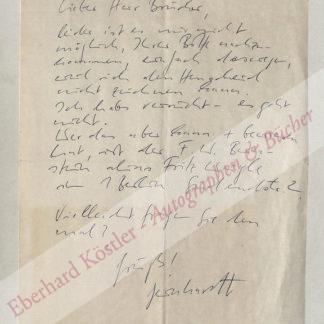 Lieber Herr Bruder,
leider ist es mir nicht
möglich, Ihrer Bitte nachzu-
kommen, einfach deswegen,
weil ich den
nicht zeichnen kann.
Ich habs versucht – es geht
nicht.
Wer das aber kann + 
hat, ist der F. W. Bern-
stein alias Fritz Weigle
in 1 Berlin
Vielleicht fragen Sie den
mal?
Gruß!
Eberhard Köstler - Autographen & Bücher